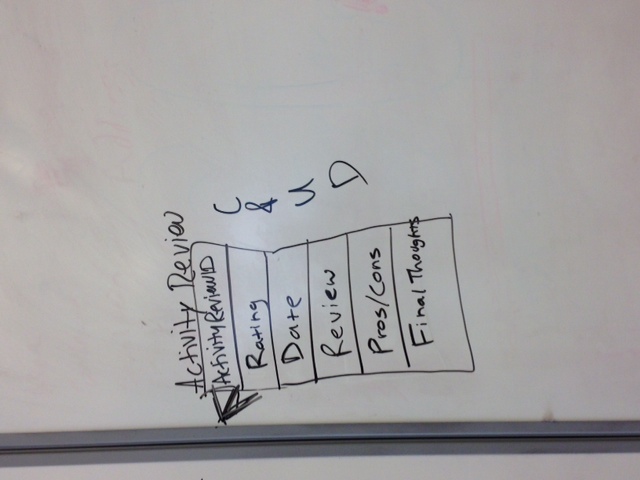 Activity Review
ActivityReviewID
Rating
Date
Review
Pros/Cons
Final Thoughts
C
&
U
D